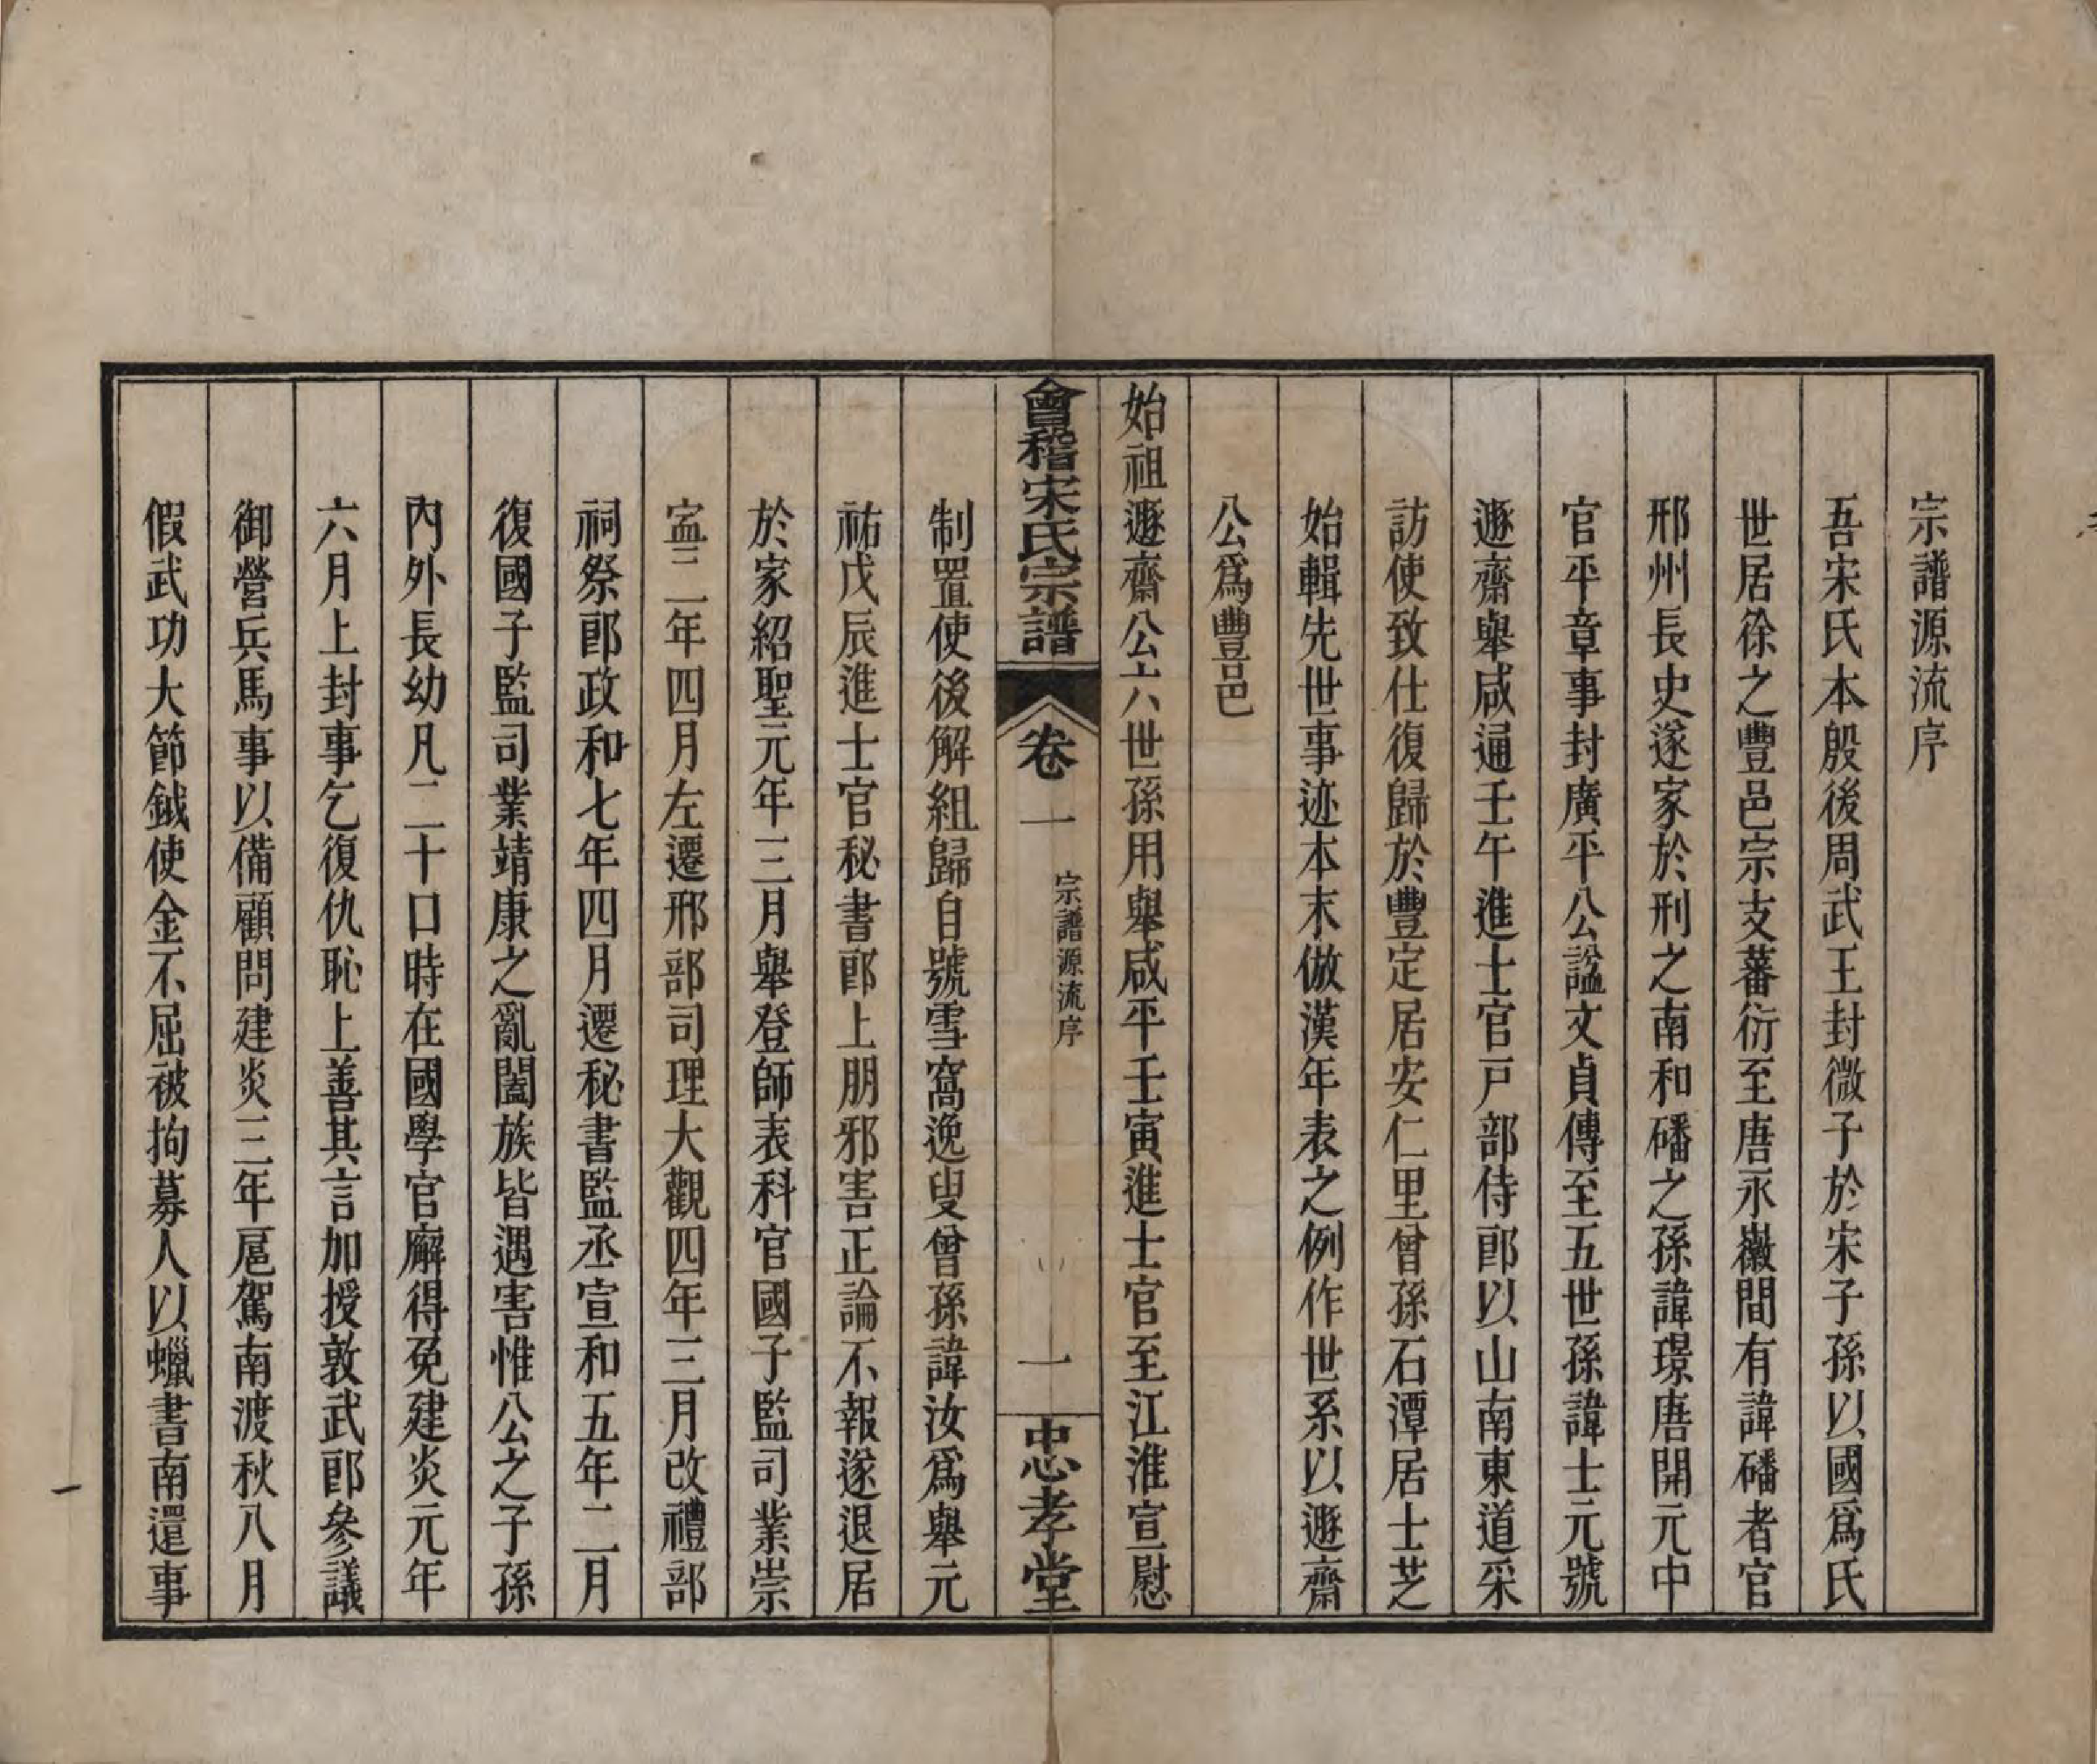 宗譜源流序
吾宋氏本殷後周武王封微子於宋子孫以國爲氏
世居徐之豐邑宗支蕃衍至唐永徽間有諱磻者官
邢州長史遂家於刑之南和磻之孫諱璟唐開元中
官平章事封廣平公諡文貞傳至五世孫諱士元號
遯齋舉咸通壬午進士官戸部侍郎以山南東道采
訪使致仕復歸於豐定居安仁里曾孫石潭居士芝
始輯先世事迹本末倣漢年表之例作世系以遯齋
公爲豐邑
始祖遯齋公六世孫用舉咸平壬寅進士官至江淮宣慰
會稽宋氏宗譜 卷一 宗譜源流序 一 忠孝堂
制置使後解組歸自號雪窩逸叟曾孫諱汝爲舉元
祐戊辰進士官秘書郎上朋邪害正論不報遂退居
於家紹聖元年三月舉登師表科官國子監司業崇
寍二年四月左遷邢部司理大觀四年三月改禮部
祠祭郎政和七年四月遷秘書監丞宣和五年二月
復國子監司業靖康之亂闔族皆遇害惟公之子孫
內外長幼凡二十口時在國學官廨得免建炎元年
六月上封事乞復仇恥上善其言加授敦武郎參議
御營兵馬事以備顧問建炎三年扈駕南渡秋八月
假武功大節鉞使金不屈被拘募人以蠟書南還事